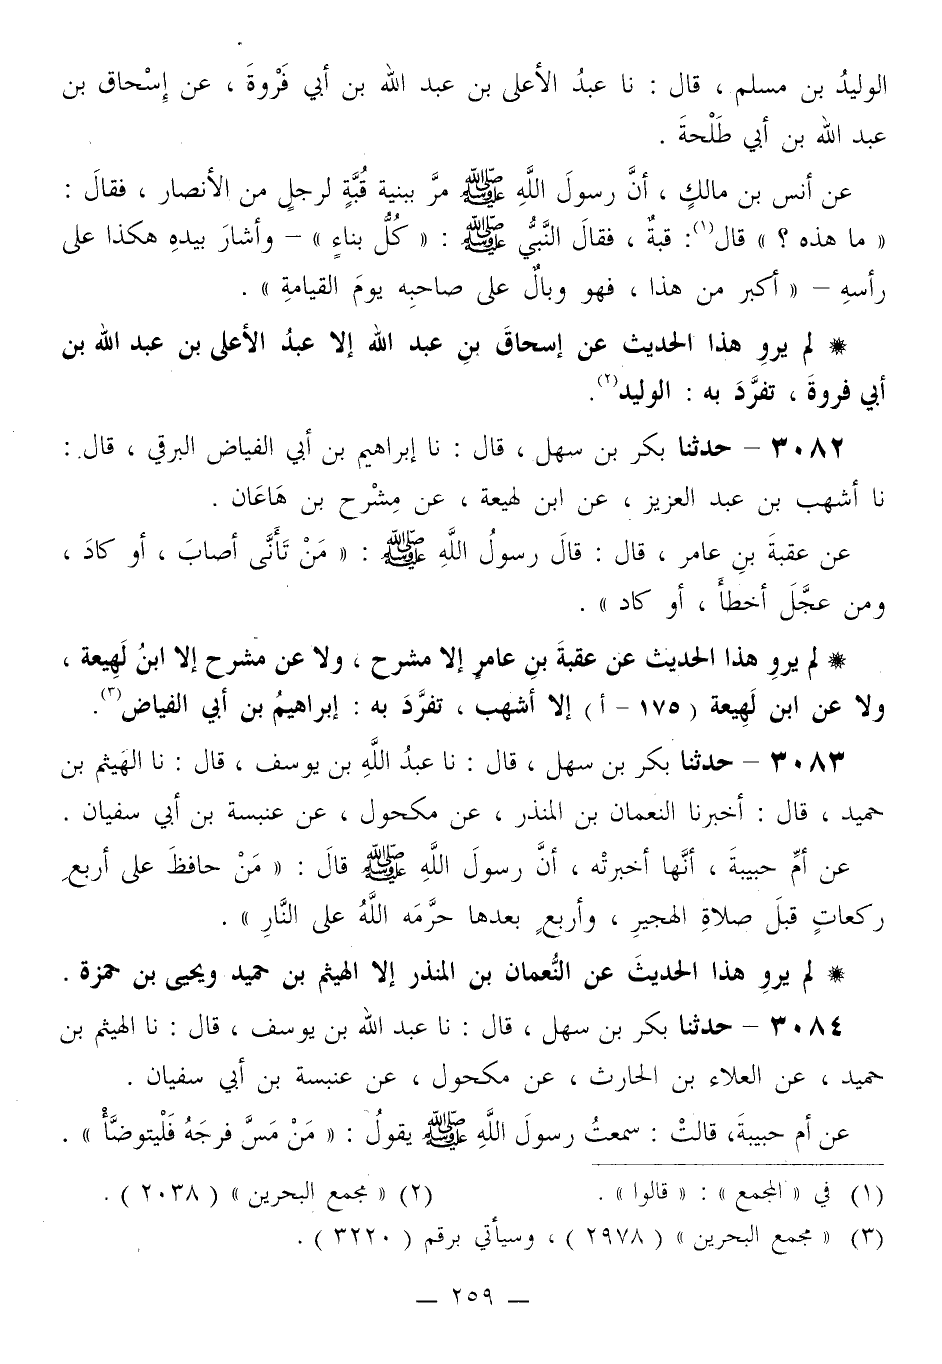 الوليدُ بن مسلم ، قال : نا عبدُ الأعلى بن عبد الله بن أبي فَرْوةَ ، عن إِسْحاق بن
عبد الله بن أبي طَلْحةَ .
عن أنس بن مالكٍ ، أنَّ رسولَ اللَّهِ ﷺ مرَّ ببنية قُبَّةٍ لرجلٍ من الأنصار ، فقالَ :
« ما هذه ؟ » قال(١): قبةٌ ، فقالَ النَّبيُّ ﷺ : « كُلُّ بناءٍ » – وأشارَ بيدهِ هكذا على
رأسهِ – « أكبر من هذا ، فهو وبالٌ على صاحبه يومَ القيامةِ » .
* لم يروِ هذا الحديث عن إسحاقَ بنِ عبد الله إلا عبدُ الأعلى بن عبد الله بن
أبي فروةَ ، تفرَّدَ به : الوليد(٢).
٣٠٨٢ – حدثنا بكر بن سهل ، قال : نا إبراهيم بن أبي الفياض البرقي ، قال :
نا أشهب بن عبد العزيز ، عن ابن لهيعة ، عن مِشْرح بن هَاعَان .
عن عقبةَ بنِ عامر ، قال : قالَ رسولُ اللَّهِ ﷺ : « مَنْ تَأَنَّى أصابَ ، أو كادَ ،
ومن عجَّلَ أخطأَ ، أو كاد » .
* لم يروِ هذا الحديث عن عقبةَ بنِ عامرٍ إلا مشرح ، ولا عن مشرح إلا ابنُ لَهِيعة ،
ولا عن ابن لَهِيعة ( ١٧٥ – أ ) إلا أشهب ، تفرَّدَ به : إبراهيمُ بن أبي الفياض(٣).
٣٠٨٣ – حدثنا بكر بن سهل ، قال : نا عبدُ اللَّهِ بن يوسف ، قال : نا الهَيثم بن
حميد ، قال : أخبرنا النعمان بن المنذر ، عن مكحول ، عن عنبسة بن أبي سفيان .
عن أمِّ حبيبةَ ، أنَّها أخبرتْه ، أنَّ رسولَ اللَّهِ ﷺ قالَ : « مَنْ حافظَ على أربعِ
ركعاتٍ قبلَ صلاةِ الهجيرِ ، وأربعٍ بعدها حرَّمَه اللَّهُ على النَّارِ » .
* لم يروِ هذا الحديثَ عن النُّعمان بن المنذر إلا الهيثم بن حميد ويحيى بن حمزة .
٣٠٨٤ – حدثنا بكر بن سهل ، قال : نا عبد الله بن يوسف ، قال : نا الهيثم بن
حميد ، عن العلاء بن الحارث ، عن مكحول ، عن عنبسة بن أبي سفيان .
عن أم حبيبةَ، قالتْ : سمعتُ رسولَ اللَّهِ ﷺ يقولُ : « مَنْ مَسَّ فرجَهُ فَلْيتوضَّأْ » .
(١) في « المجمع » : « قالوا » . (٢) « مجمع البحرين » ( ٢٠٣٨ ) .
(٣) « مجمع البحرين » ( ٢٩٧٨ ) ، وسيأتي برقم ( ٣٢٢٠ ) .
— ٢٥٩ —